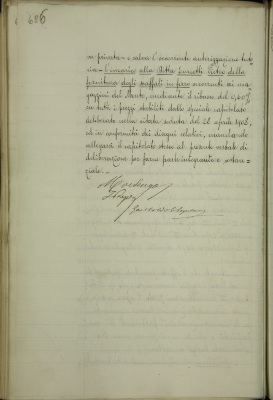 686
in privata - e salvo l'occorrente autorizzazione tuto
ria - l'incarico alla Ditta Zanetti Pietro della
fornitura degli scaffali in ferro occorrenti ai ma
gazzini del Monte, mediante il ribasso del 0,40%
su tutti i prezzi stabiliti dallo speciale capitolato
deliberato nella citata seduta del 28 aprile 1908,
ed in conformità dei disegni relativi, mandando
allegarsi il capitolato stesso al presente verbale di
deliberazione per farne parte integrante e sostan
ziale. -